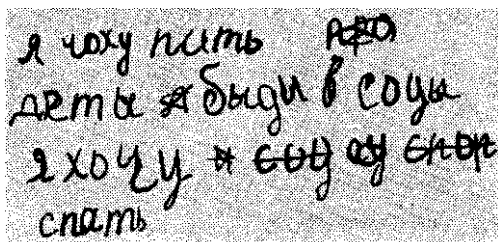 я чоху пить
деты быди в соцы
я хочу
спать